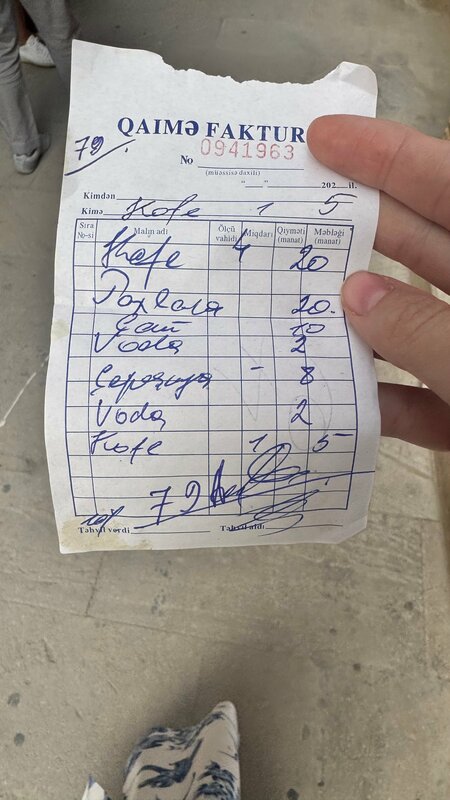 QAIMƏ FAKTUR
79.
No 0941963
(müəssisə daxili)
"__" 202 il.
Kimdən
Kimə Kofe 1 5
Sıra №-si Malın adı Ölçü vahidi Miqdarı Qiyməti (manat) Məbləği (manat)
Kofe 4 20
Paxlava 20.
Çay 10
Voda 2
– 8
Voda 2
Kofe 1 5
72
Təhvil verdi Təhvil aldı